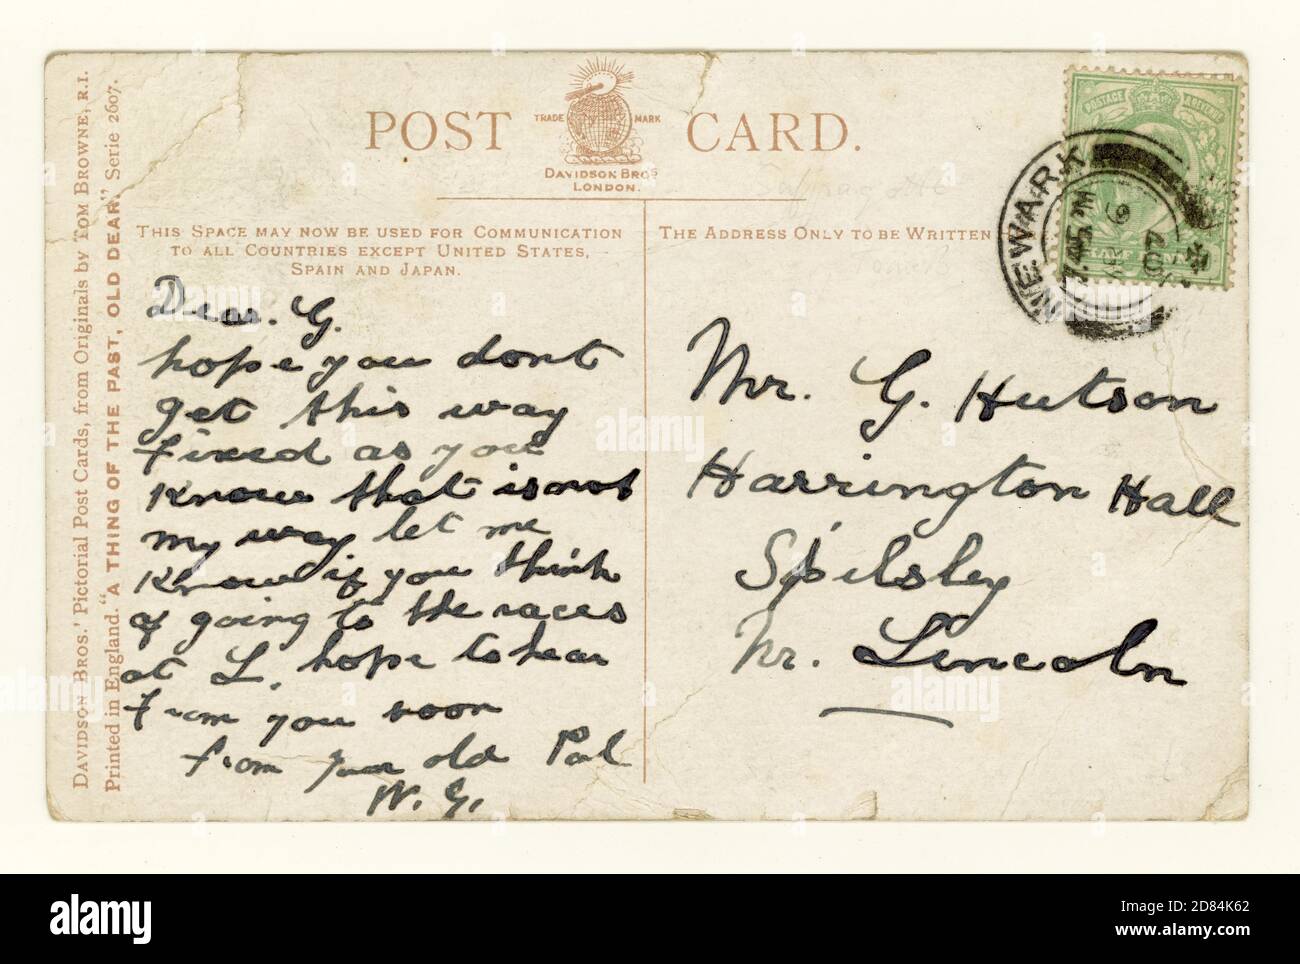 DAVIDSON BROS.' Pictorial Post Cards, from Originals by TOM BROWNE, R.I.
Printed in England. "A THING OF THE PAST, OLD DEAR." Serie 2607.
POST CARD.
TRADE MARK
DAVIDSON BROS
LONDON.
THIS SPACE MAY NOW BE USED FOR COMMUNICATION
TO ALL COUNTRIES EXCEPT UNITED STATES,
SPAIN AND JAPAN.
THE ADDRESS ONLY TO BE WRITTEN
POSTAGE & REVENUE
NEWARK
7.45 PM
Dear. G.
hope you dont
get this way
fixed as you
know that is not
my way let me
know if you think
of going to the races
at L. hope to hear
from you soon
from your old Pal
W. G.
Mr. G. Hutson
Harrington Hall
Spilsby
Nr. Lincoln
alamy
Image ID: 2D84K62
www.alamy.com